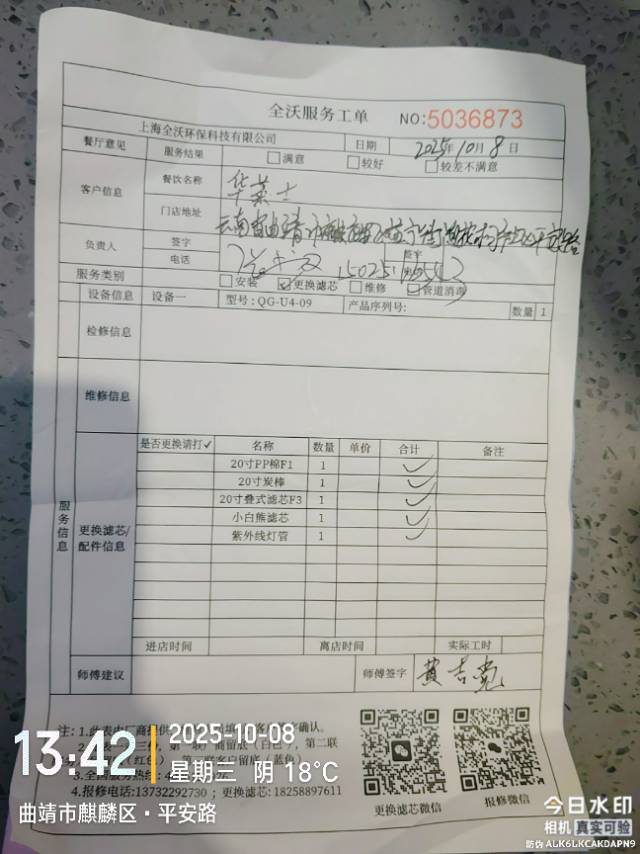 全沃服务工单 NO:5036873
上海全沃环保科技有限公司 日期 2025年10月8日
餐厅意见 服务结果 满意 较好 较差不满意
客户信息 餐饮名称 华莱士
门店地址 云南省曲靖市麒麟区益宁街道
负责人 签字 签字
电话
服务类别 安装 更换滤芯 维修 管道消毒
设备信息 设备一 型号:QG-U4-09 产品序列号: 数量 1
检修信息
维修信息
服务信息
更换滤芯/配件信息
是否更换请打✓ 名称 数量 单价 合计 备注
20寸PP棉F1 1 ✓
20寸炭棒 1 ✓
20寸叠式滤芯F3 1 ✓
小白熊滤芯 1 ✓
紫外线灯管 1 ✓
进店时间 离店时间 实际工时
师傅建议 师傅签字 黄吉党
注:1.此表由厂商提供
4.报修电话:13732292730 ; 更换滤芯:18258897611
更换滤芯微信 报修微信
13:42 2025-10-08
星期三 阴 18℃
曲靖市麒麟区·平安路
今日水印
相机 真实可验
防伪 ALK6LKCAKDAPN9